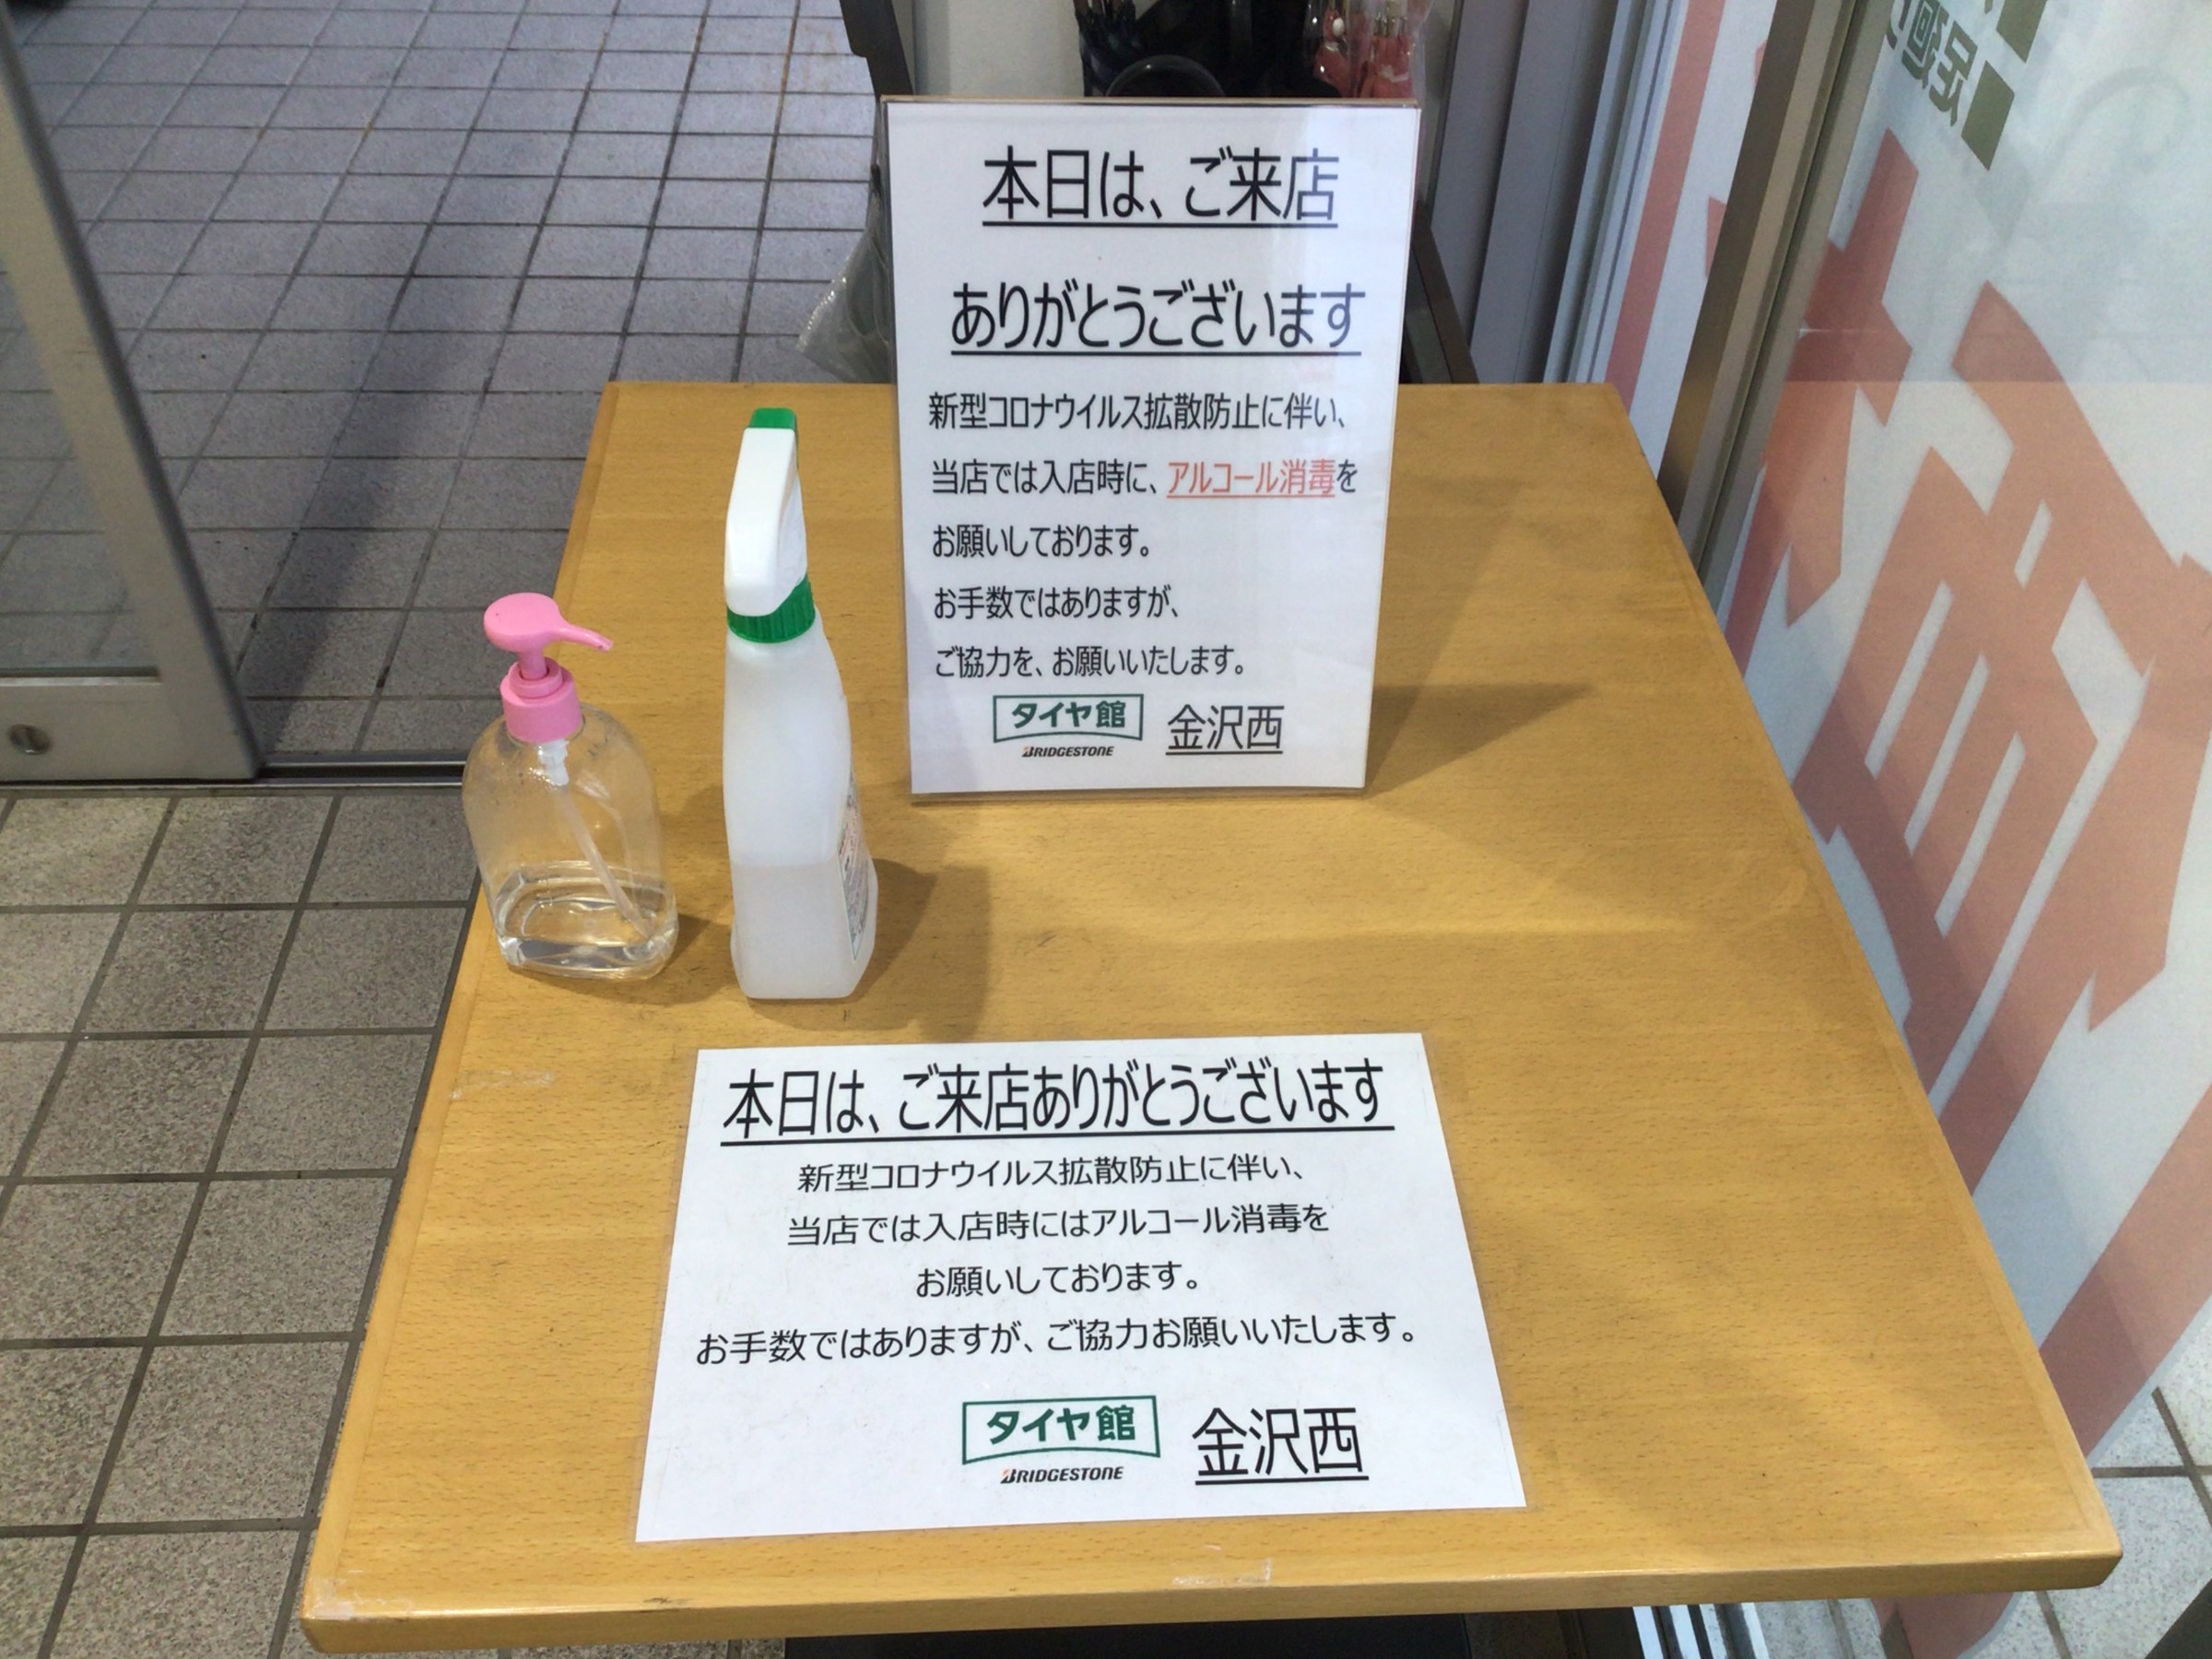 本日は、ご来店
ありがとうございます
新型コロナウイルス拡散防止に伴い、
当店では入店時に、アルコール消毒を
お願いしております。
お手数ではありますが、
ご協力を、お願いいたします。
タイヤ館 金沢西
BRIDGESTONE
本日は、ご来店ありがとうございます
新型コロナウイルス拡散防止に伴い、
当店では入店時にはアルコール消毒を
お願いしております。
お手数ではありますが、ご協力お願いいたします。
タイヤ館 金沢西
BRIDGESTONE